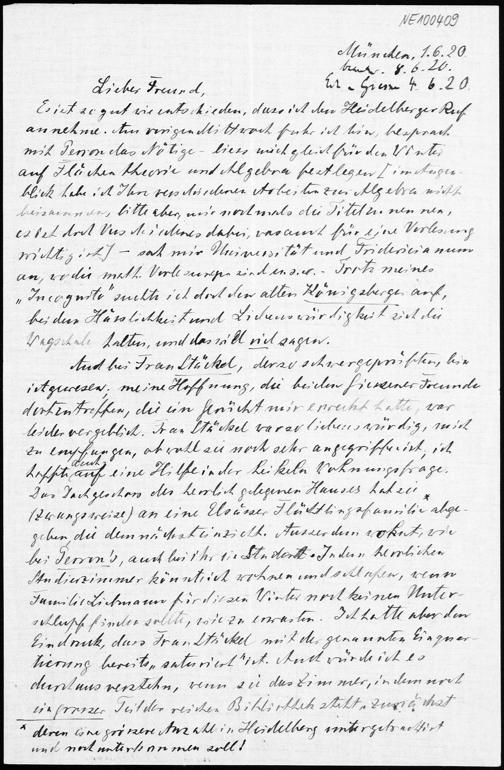 NE100409
München, 1.6.20.
beantw. 8.6.20.
Erh. 4.6.20.
Lieber Freund,
Es ist so gut wie entschieden, dass ich den Heidelberger Ruf
annehme. Am vorigen Mittwoch fuhr ich hin, besprach
mit Perron das Nötige - liess mich gleich für den Winter
auf Flächentheorie und Algebra festlegen [im Augen-
blick habe ich Ihre verschiedenen Arbeiten zur Algebra nicht
beisammen, bitte aber, mir nochmals die Titel zu nennen,
es ist doch Verschiedenes dabei, was auch für eine Vorlesung
wichtig ist] - sah mir Universität und Fridericianum
an, wo die math. Vorlesungen sind u.s.w. - Trotz meines
„Incognito" suchte ich dort den alten Königsberger auf,
bei dem Hässlichkeit und Liebenswürdigkeit sich die
Wagschale halten, und das will viel sagen.
Auch bei Frau Stäckel, der so schwergeprüften, bin
ich gewesen. meine Hoffnung, die beiden Giessener Freunde
dort zu treffen, die ein Gerücht mir erweckt hatte, war
leider vergeblich. Frau Stäckel war so liebenswürdig, mich
zu empfangen, obwohl sie noch sehr angegriffen ist, ich
hoffte auch auf eine Hilfe in der heikeln Wohnungsfrage.
Das Dachgeschoss des herrlich gelegenen Hauses hat sie
(zwangsweise) an eine Elsässer Flüchtlingsfamilie* abge-
geben, die demnächst einzieht. Ausserdem wohnt, wie
bei Perron's, auch bei ihr ein Student. In dem herrlichen
Studierzimmer könnte ich wohnen und schlafen, wenn
Familie Liebmann für diesen Winter noch keinen Unter-
schlupf finden sollte, wie zu erwarten. Ich hatte aber den
Eindruck, dass Frau Stäckel mit der genannten Einquar-
tierung bereits „saturiert" ist. Auch würde ich es
durchaus verstehn, wenn sie das Zimmer, in dem noch
ein grosser Teil der reichen Bibliothek steht, zunächst
* deren eine grössere Anzahl in Heidelberg untergebracht ist
und noch unterkommen soll!